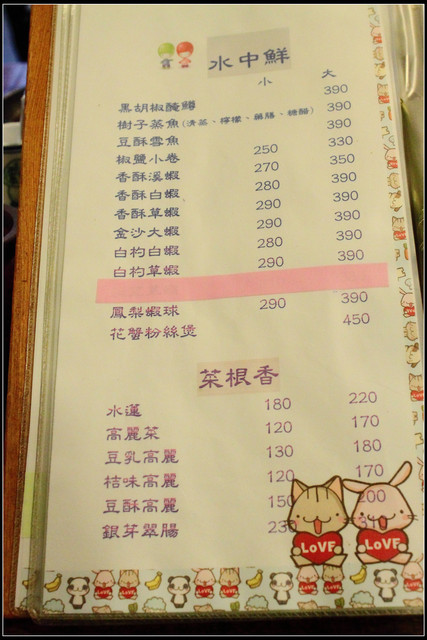 水中鮮
小 大
黑胡椒醃鱒 390
樹子蒸魚(清蒸、檸檬、藥膳、糖醋) 390
豆酥雪魚 390
椒鹽小卷 250 330
香酥溪蝦 270 350
香酥白蝦 280 390
香酥草蝦 290 390
金沙大蝦 290 390
白杓白蝦 280 390
白杓草蝦 290 390
鳳梨蝦球 290 390
花蟹粉絲煲 450
菜根香
水蓮 180 220
高麗菜 120 170
豆乳高麗 130 180
桔味高麗 120 170
豆酥高麗 150 200
銀芽翠腸 230
LOVE LOVE